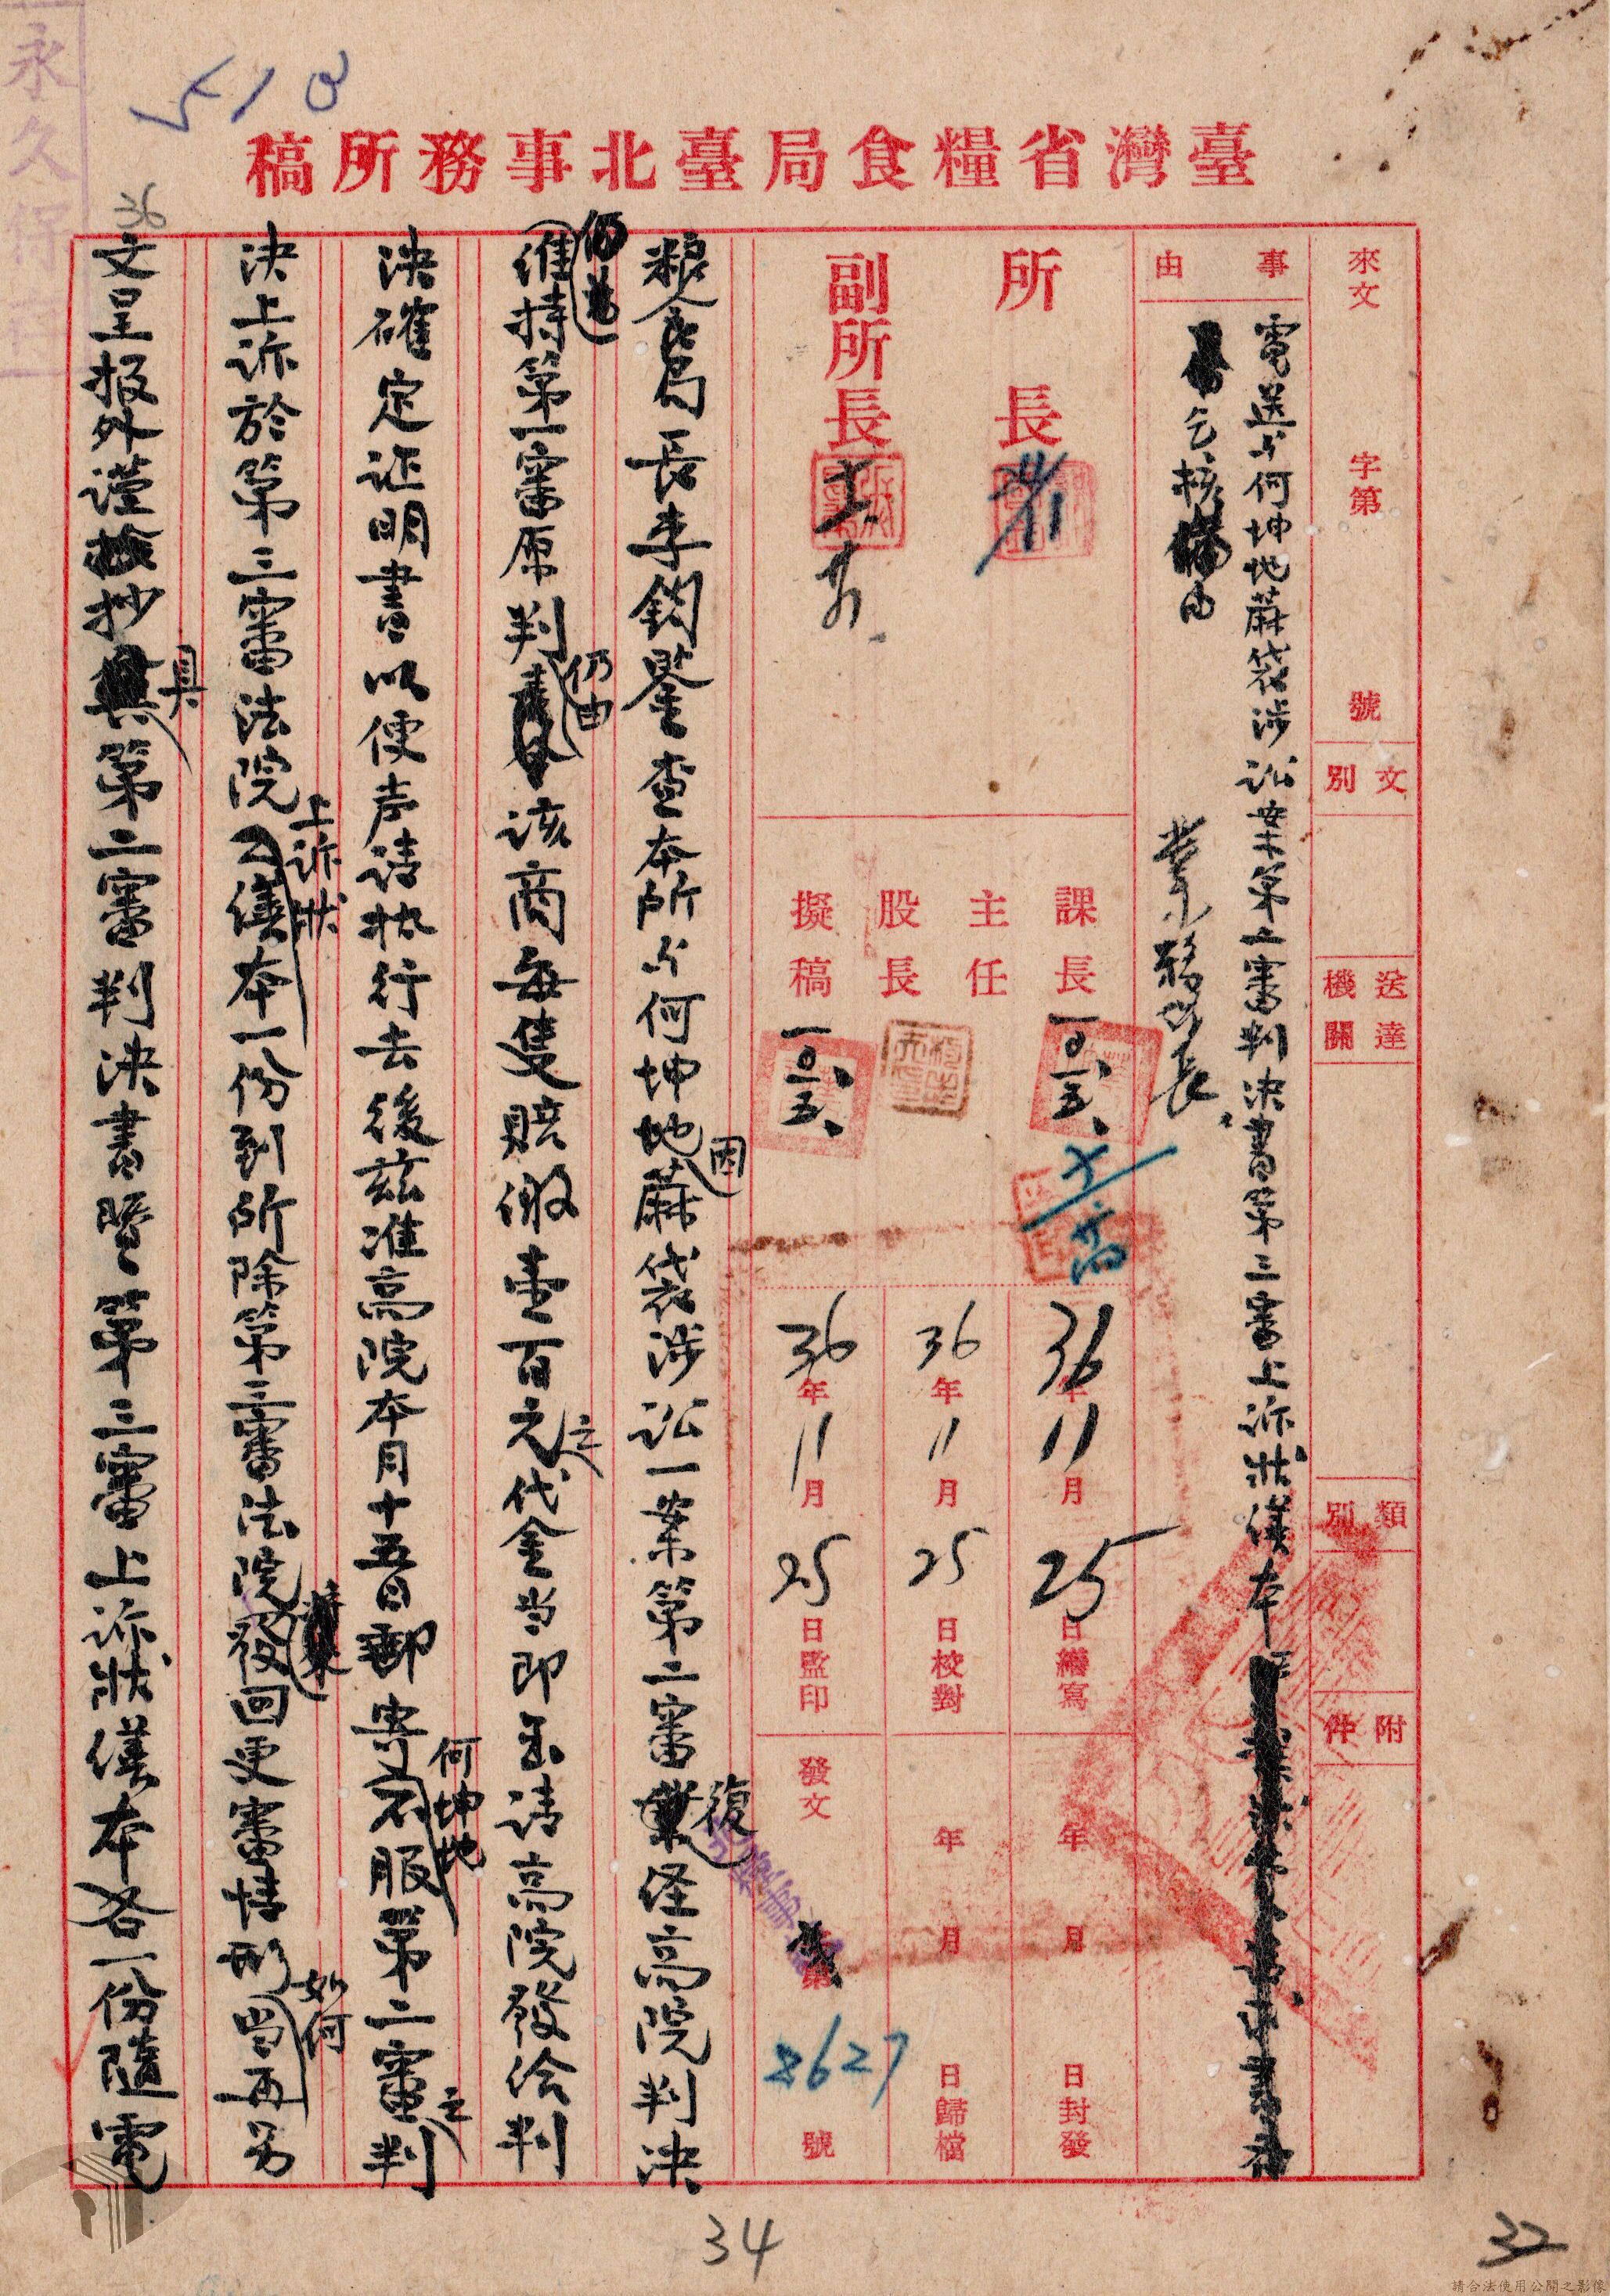 永久保存
510
臺灣省糧食局臺北事務所稿
來文 字第 號
文別
送達機關
類別
附件
事由
電送與何坤地蔴袋涉訟案第二審判決書第三審上訴狀繕本
乞核由
業務課長
所長
副所長
課長
主任
股長
擬稿
一〇、五、
一〇、五、
36年11月25日繕寫
36年11月25日校對
36年11月25日監印
年月日封發
年月日歸檔
發文 第2627號
粮食局長李鈞鑒查本所與何坤地因蔴袋涉訟一案第二審復經高院判決
維持第一審原判仍由該商每隻賠繳壹百元之代金当即函請高院發给判
決確定証明書以便声請执行去後茲准高院本月十五日郵寄何坤地不服第二審之判
決上訴於第三審法院上訴狀繕本一份到所除第三審法院發回更審情形如何当再另
文呈报外谨检抄具第二審判決書暨第三審上訴狀繕本各一份隨電
36
34
32
請合法使用公開之影像